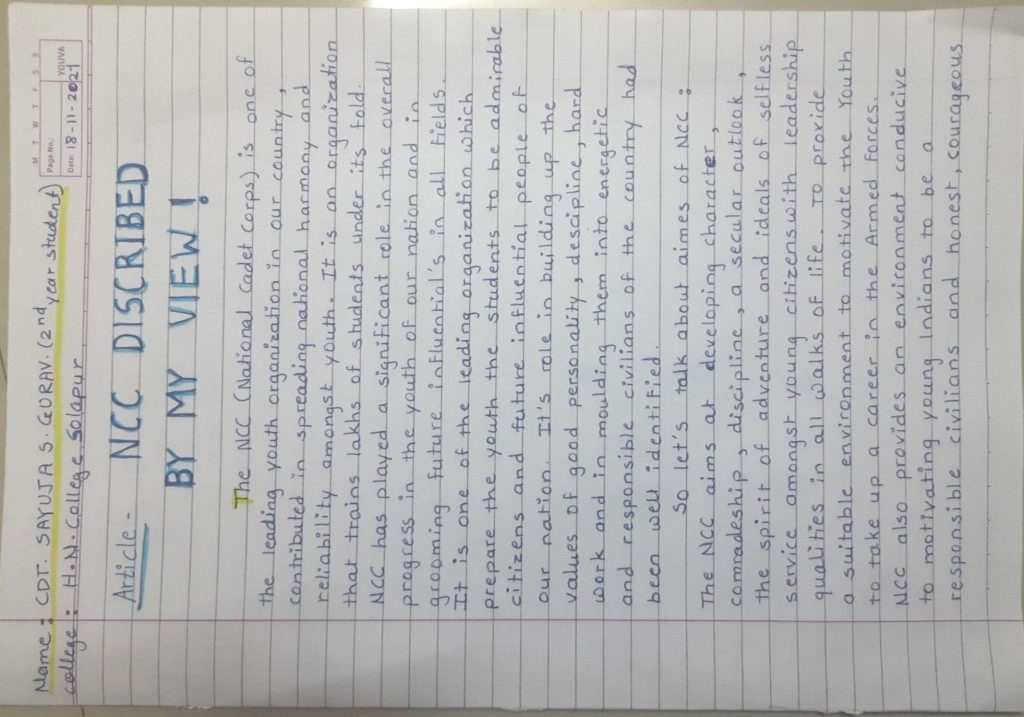 M T W T F S S
Page No.:
Date: 18-11-2021
YOUVA
Name : CDT. SAYUJA S. GURAV. (2nd year student)
college : H.N. College, Solapur
Article - NCC DISCRIBED
BY MY VIEW !
The NCC (National Cadet Corps) is one of
the leading youth organization in our country,
contributed in spreading national harmony and
reliability amongst youth. It is an organization
that trains lakhs of students under its fold.
NCC has played a significant role in the overall
progress in the youth of our nation and in
grooming future influential's in all fields.
It is one of the leading organization which
prepare the youth the students to be admirable
citizens and future influential people of
our nation. It's role in building up the
values of good personality, descipline, hard
work and in moulding them into energetic
and responsible civilians of the country had
been well identified.
So let's talk about aimes of NCC :
The NCC aims at developing character,
comradeship, discipline, a secular outlook,
the spirit of adventure and ideals of selfless
service amongst young citizens with leadership
qualities in all walks of life. To provide
a suitable environment to motivate the Youth
to take up a career in the Armed Forces.
NCC also provides an environment conducive
to motivating young Indians to be a
responsible civilians and honest, courageous